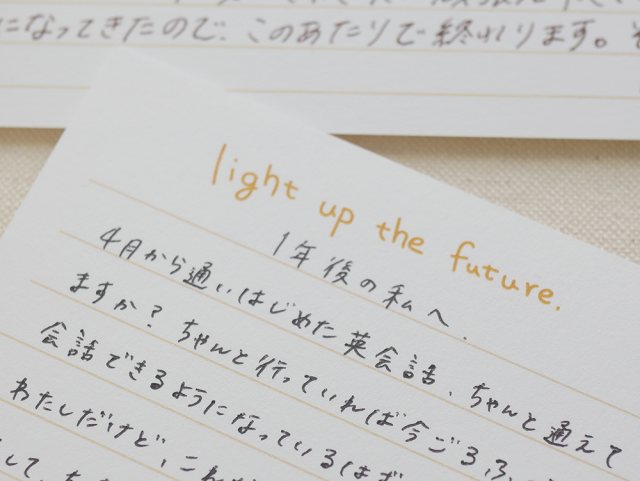 になってきたので、このあたりで終わります。
light up the future.
1年後の私へ.
4月から通いはじめた英会話、ちゃんと通えて
ますか？ちゃんと行っていれば今ごろふ
会話できるようになっているはず
わたしだけど、これ
して、